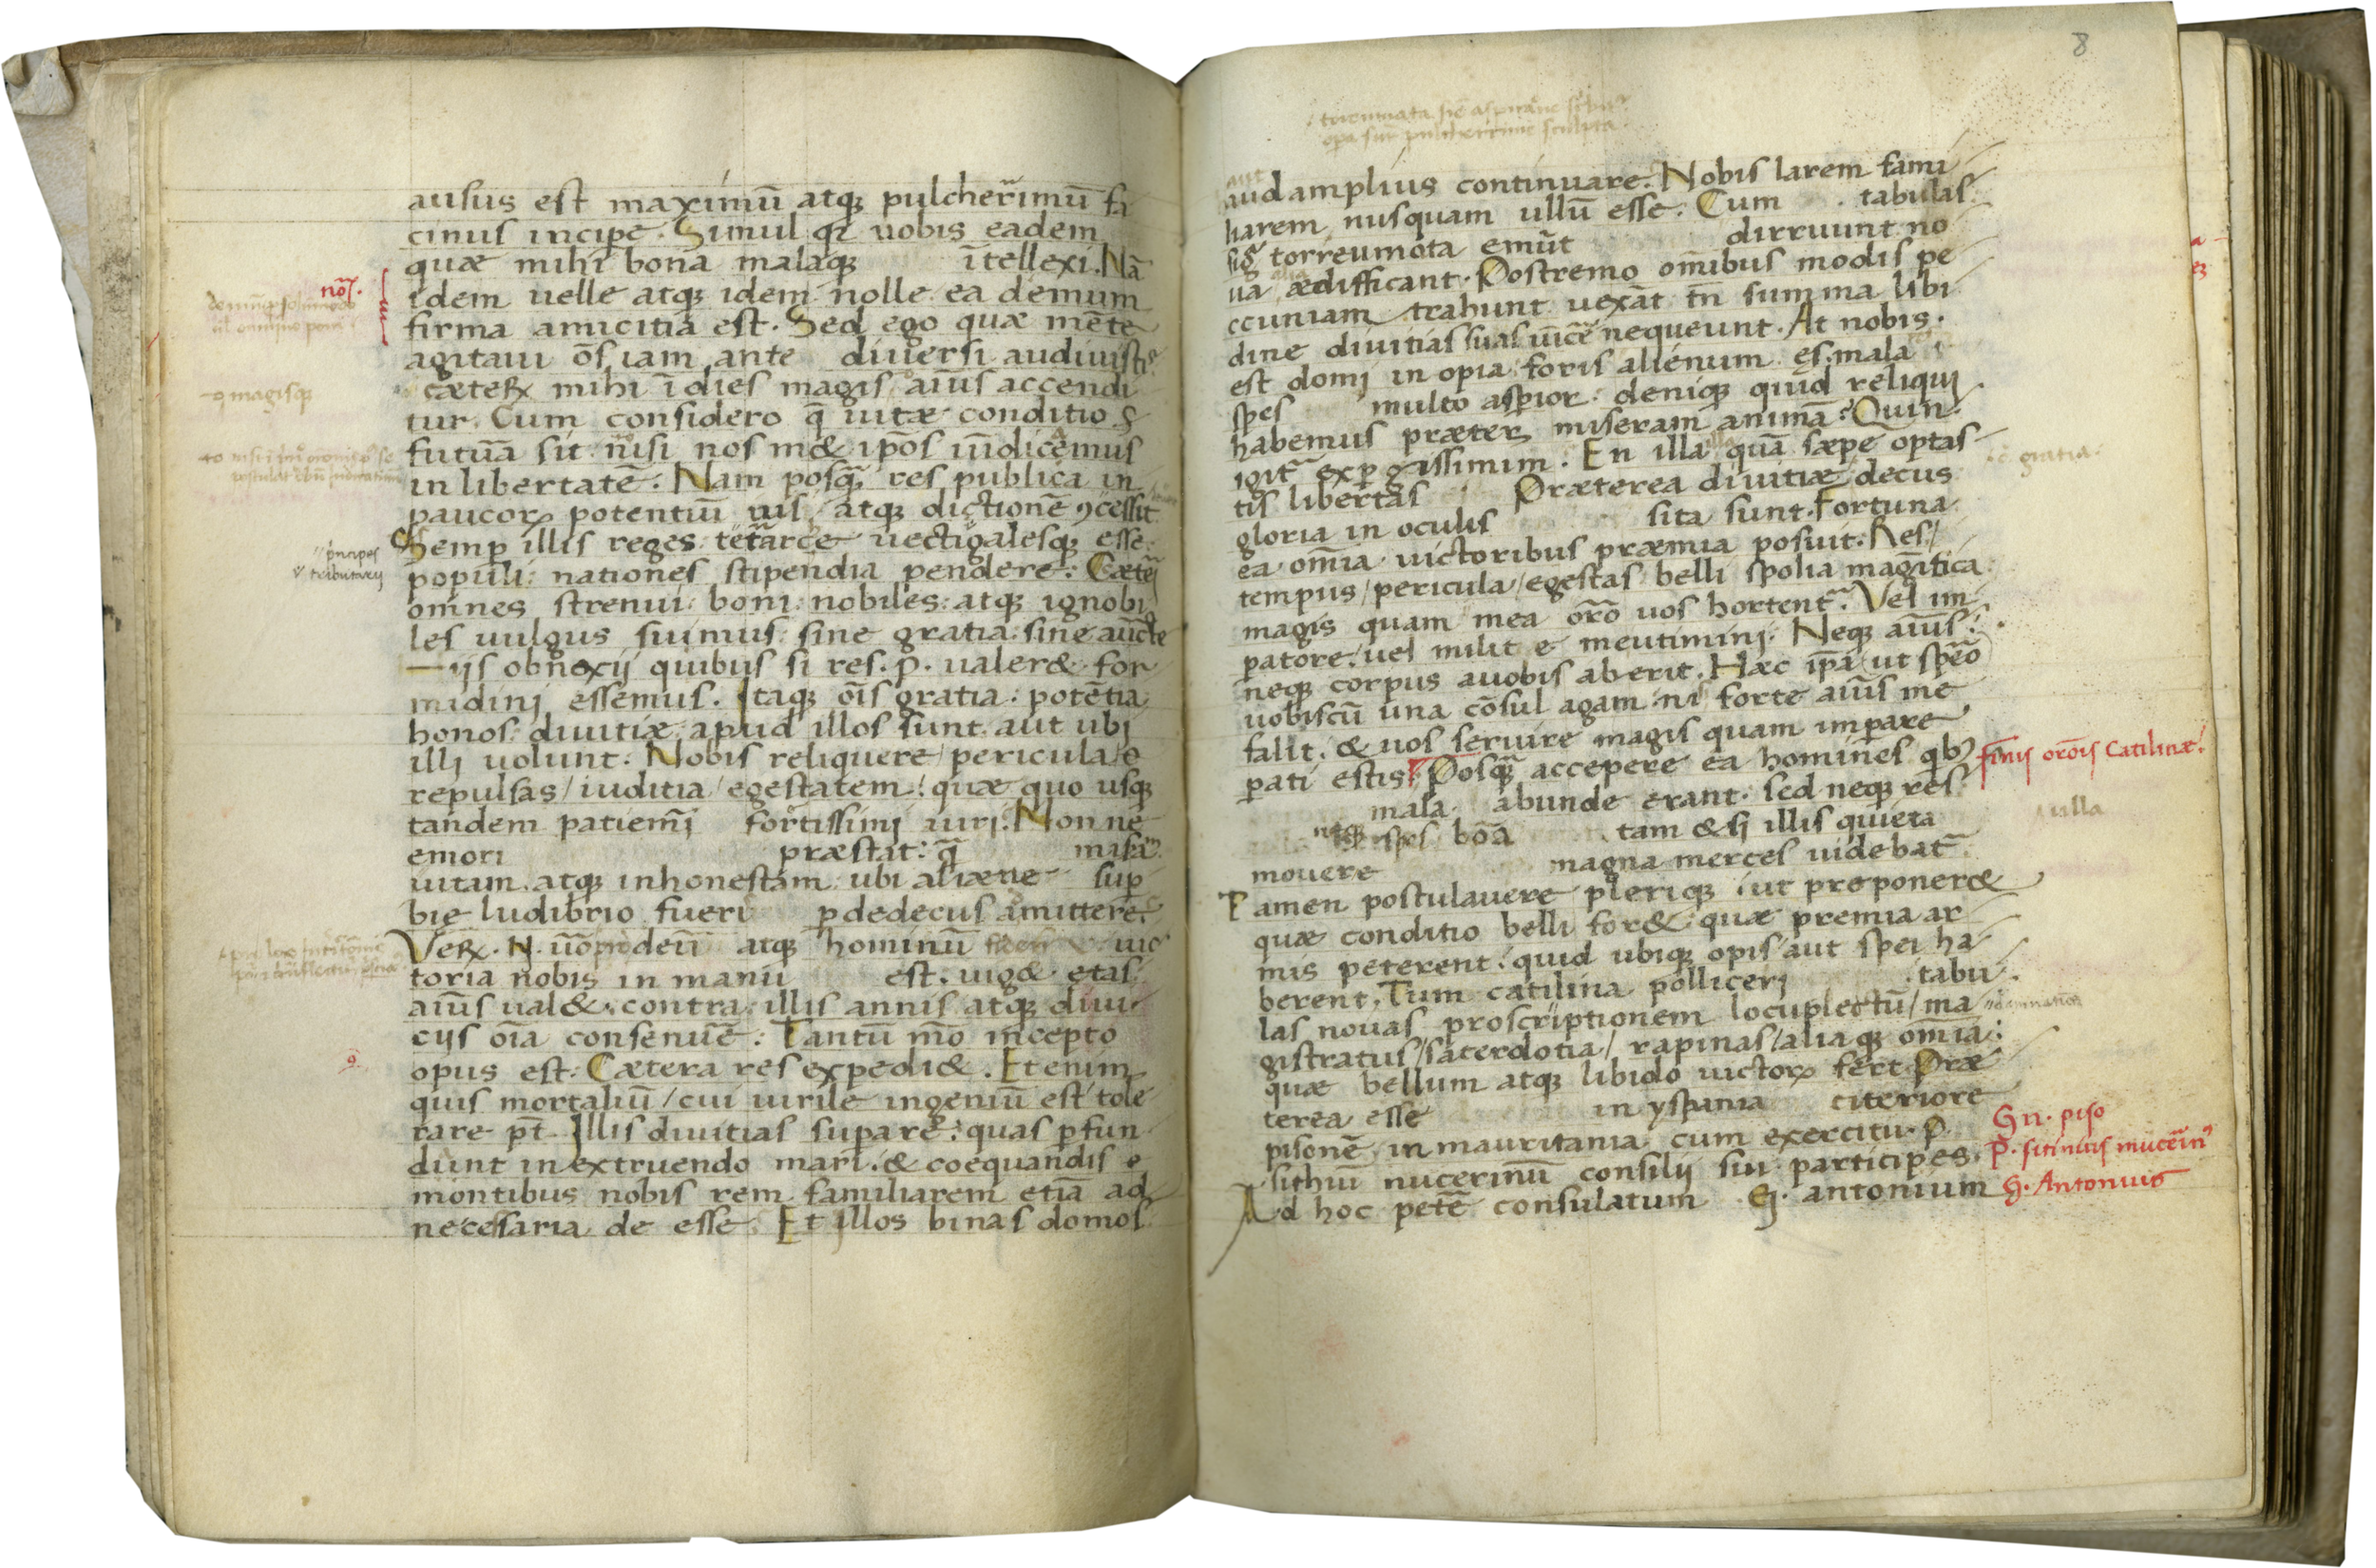 ausus est maximū atq̨ pulcherimū fa
cinus incipe. Simul q̄ uobis eadem
quæ mihi bona malaq̨ ītellexi. Nā
idem uelle atq̨ idem nolle ea demum
firma amicitia est. Sed ego quæ mēte
agitaui ōs iam ante diuersi audiuistis
cæteꝝ mihi īdies magis aīus accendi
tur. Cum considero q̄ uitæ conditio
futūa sit nisi nos m& ipos
in libertatē. Nam posq̄ res publica in
paucoꝝ potentiū ius atq̨ dictionē ꝯcessit
Semꝑ illis reges tetrarce uectigalesq̨ esse
populi: nationes stipendia pendere: Cæteri
omnes strenui: boni: nobiles: atq̨ ignobi
les uulgus suimus: sine gratia: sine aucte
ijs obnoxij quibus si res. p. ualer& for
midinj essemus. Itaq̨ oīs gratia: potētia
honos: diuitiæ: apud illos sunt aut ubj
illj uolunt: Nobis reliquere/ pericula/
repulsas/ iuditia/ egestatem: quæ quo usq̨
tandem patiemj fortissimj uirj. Non ne
emori præstat: q̄
uitam atq̨ inhonestam: ubi alienæ suꝑ
bie ludibrio fueri ꝑ dedecus amittere.
Veꝝ. deū atq̨ hominū uic
toria nobis in manu est. uig& etas
aīus ual&. contra illis annis atq̨ diui
cijs oīa consenuē: Tantū mō incepto
opus est: Cætera res expedi&. Et enim
quis mortaliū/ cui uirile ingeniū est tole
rare pt̄ Illis diuitias suꝑare: quas ꝓfun
dunt in extruendo marī. & coequandis
montibus nobis rem familiarem etiā ad
necessaria de esse. Et illos binas domos
nō.
magisq̨
principes
tributarij
8
aud amplius continuare. Nobis larem fami
liarem nusquam ullū esse. Cum tabulas
sig̃ torreumota emūt dirruunt no
ua ædifficant. Postremo omībus modis pe
ccuniam trahunt uexāt tn̄ summa libi
dine diuitias suas uīcē nequeunt. At nobis.
est domj in opia foris alienum ęs. mala
spes multo asꝑior: deniq̨ quid reliqui
habemus præter miseram animā? Quin
igit̃ exꝑgissimim. En illa quā sæpe optas
tis libertas Præterea diuitiæ decus
gloria in oculis sita sunt. Fortuna
ea omīa uictoribus præmia posuit. Res/
tempus/ pericula/ egestas belli spolia magītica
magis quam mea orō uos hortent̃. Vel im
patore: uel milit e meutiminj. Neq̨ aīus:
neq̨ corpus auobis aberit. Hæc ipā ut speō
uobiscū una cōsul agam ni forte aīus me
falit. & uos seruire magis quam imꝑare
ꝑati estis. Posq̄ accepere ea homines qbꝰ
mala abunde erant. sed neq̨ res
neq̨ spes bōa tam &si illis quieta
mouere magna merces uidebat̃
Tamen postulauere pleriq̨ ut proponer&
quæ conditio belli for& quæ premia ar
mis peterent. quid ubiq̨ opis/ aut spei ha
berent. Tum catilina polliceri tabu
las nouas proscriptionem locuplectū/ ma
gistratus/ sacerdotia/ rapinas/ aliaq̨ omīa:
quæ bellum atq̨ libido uictoꝝ fert. Præ
terea esse in yspania citeriore
pisonē in mauritania cum exercitu. P.
sithiū nucerinū consilij sui participes.
Ad hoc petē consulatum G. antonium
gratia.
finis orōis Catilinæ.
ulla
Gn. piso
P. sitinus
G. Antonius